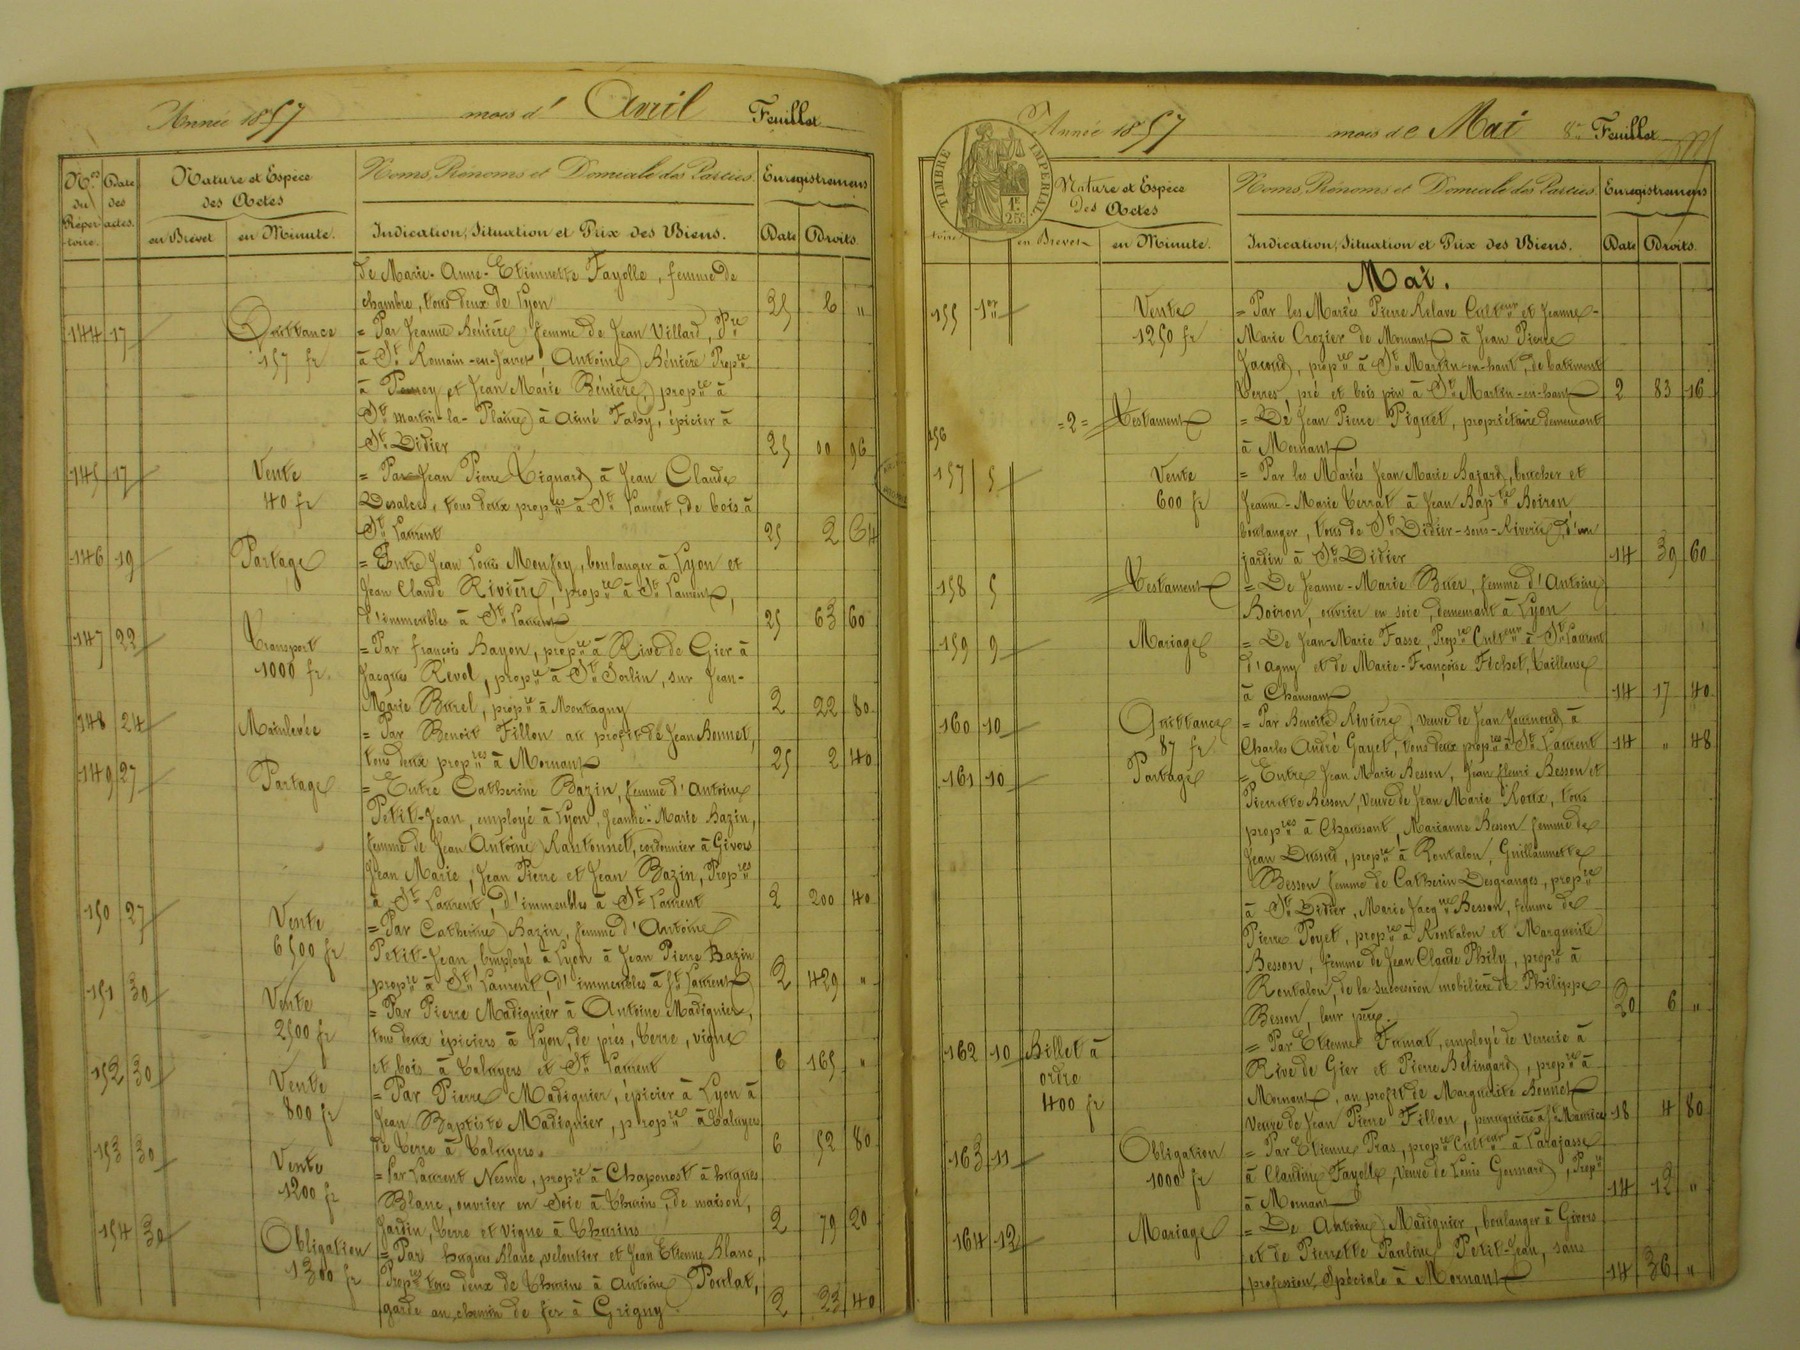 Année 1857 mois d' Avril Feuillet
Nos du Réper-toire. Date des actes. Nature et Espèce des Actes Noms, Prénoms et Domicile des Parties Enregistremens
en Brevet en Minute. Indication, Situation et Prix des Biens. Date Droits.
de Marie-Anne-Etiennette Fayolle, femme de
chambre, tous deux de Lyon 25 6 "
144 17 Quittance = Par Jeanne Bénière, femme de Jean Villard, Pre
157 fr à St Romain-en-Jarret, Antoine Bénière Propre
à et Jean Marie Bénière, propre à
St Martin-la-Plaine à Aimé Faby, épicier à
St Didier 25 00 96
145 17 Vente = Par Jean Pierre Vignard à Jean Claude
40 fr Desalces, tous deux propres à St Laurent, de bois à
St Laurent 25 2 64
146 19 Partage = Entre Jean Louis Monfey, boulanger à Lyon et
Jean Claude Rivière, propre à St Laurent,
d'immeubles à St Laurent 25 63 60
147 22 Transport = Par françois Bayon, propre à Rive de Gier à
1000 fr. Jacques Révol, propre à St Sorlin, sur Jean-
Marie Burel, propre à Montagny 2 22 80
148 24 Mainlevée = Par Benoit Fillon au profit de Jean Bonnet,
tous deux propres à Mornant 25 2 40
149 27 Partage = Entre Catherine Bazin, femme d'Antoine
Petit-Jean, employé à Lyon, Jeanne-Marie Bazin,
femme de Jean Antoine Rastonnet, cordonnier à Givors
Jean Marie, Jean Pierre et Jean Bazin, Propres
à St Laurent, d'immeubles à St Laurent 2 200 40
150 27 Vente = Par Catherine Bazin, femme d'Antoine
6500 fr Petit-Jean, employé à Lyon à Jean Pierre Bazin
propre à St Laurent, d'immeubles à St Laurent 2 429 "
151 30 Vente = Par Pierre Madignier à Antoine Madignier,
2500 fr tous deux épiciers à Lyon, de prés, terre, vigne
et bois à Taluyers et St Laurent 6 165 "
152 30 Vente = Par Pierre Madignier, épicier à Lyon à
800 fr Jean Baptiste Madignier, propre à Taluyers
de terre à Taluyers. 6 52 80
153 30 Vente = Par Laurent Nesme, propre à Chaponost à hugues
1200 fr Blanc, ouvrier en Soie à Thurins, de maison,
Jardin, terre et vigne à Thurins 2 79 20
154 30 Obligation = Par hugues Blanc, veloutier et Jean Etienne Blanc,
1300 fr Propres tous deux de Thurins à Antoine Poulat,
garde au chemin de fer à Grigny 2 23 40
Année 1857 mois de Mai 8me Feuillet
TIMBRE IMPERIAL. 1f 25c
toire. Nature et Espèce des Actes Noms, Prénoms et Domicile des Parties Enregistremens
en Brevet en Minute. Indication, Situation et Prix des Biens. Date Droits.
Mai.
155 1er Vente = Par les Mariés Pierre Relave Culteur et Jeanne-
1250 fr Marie Crozier de Mornant à Jean Pierre
Jacoud, propre à St Martin-en-haut, de batiment
terres, pré et bois pin à St Martin-en-haut 2 83 16
156 =2= Testament = De Jean Pierre Piguet, propriétaire demeurant
à Mornant
157 5 Vente = Par les Mariés Jean Marie Bajard, boucher et
600 fr Jeanne-Marie Terrat à Jean Bapte Boiron,
boulanger, tous de St Didier-sous-Riverie, d'un
jardin à St Didier 14 39 60
158 5 Testament = De Jeanne-Marie Buer, femme d'Antoine
Boiron, ouvrier en soie demeurant à Lyon
159 9 Mariage = De Jean-Marie Fasse, Propre Culteur à St Laurent
d'agny et de Marie-Françoise Fichet, tailleuse
à Chaussant 14 17 40
160 10 Quittance = Par Benoîte Rivière, veuve de Jean Journoud à
87 fr Charles André Gayet, tous deux propres à St Laurent 14 " 48
161 10 Partage = Entre Jean Marie Besson, Jean fleuri Besson et
Pierrette Besson, veuve de Jean Marie Roux, tous
propres à Chaussant, Marianne Besson femme de
Jean Dussud, propre à Rontalon, Guillaumette
Besson femme de Catherin Desgranges, propre
à St Didier, Marie Jacqne Besson, femme de
Pierre Poyet, propre à Rontalon et Marguerite
Besson, femme de Jean Claude Phily, propre à
Rontalon, de la succession mobilière de Philippe
Besson, leur père. 20 6 "
162 10 Billet à ordre 400 fr = Par Etienne Furnat, employé de verrerie à
Rive de Gier et Pierre Belingard, propre à
Mornant, au profit de Marguerite Bonnet
veuve de Jean Pierre Fillon, à St Maurice 18 4 80
163 11 Obligation = Par Etienne Pras, propre Culteur à Larajasse
1000 fr à Claudine Fayolle, veuve de Louis Gonnard, Propre
à Mornant 14 12 "
164 12 Mariage = De Antoine Madignier, boulanger à Givors
et de Pierrette Pauline Petit-Jean, sans
profession Spéciale à Mornant 14 36 "